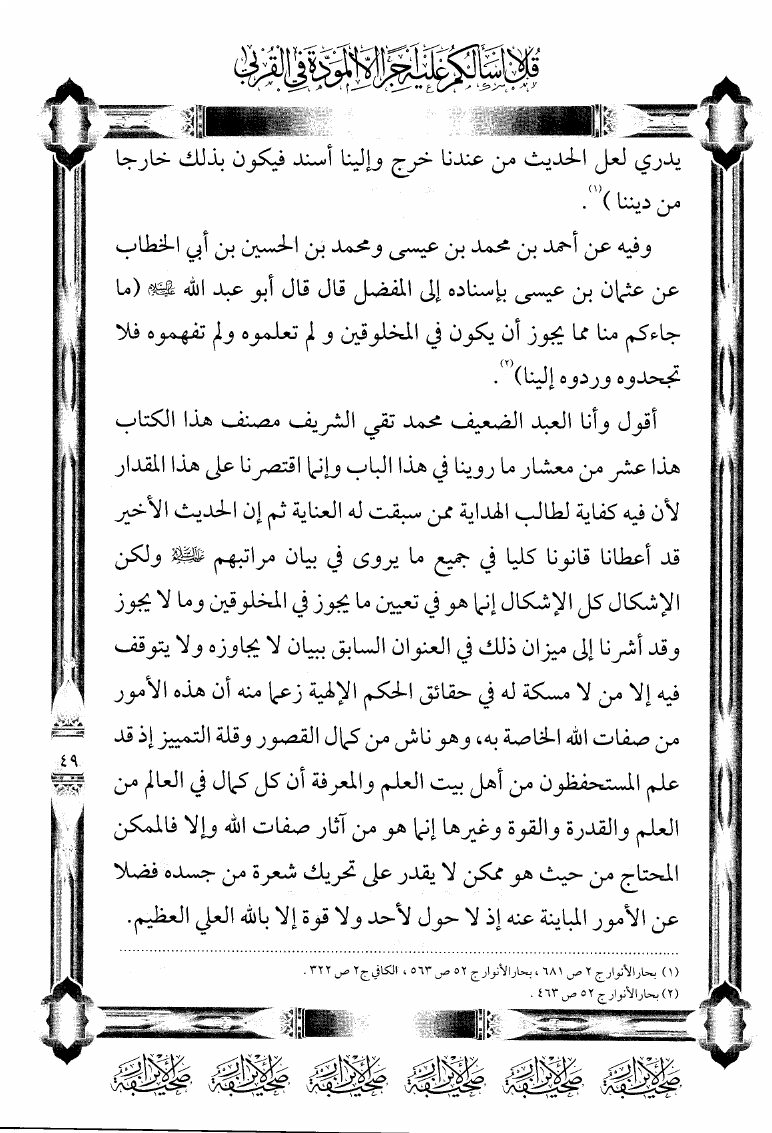 قل لا أسألكم عليه أجرا إلا المودة في القربى
يدري لعل الحديث من عندنا خرج وإلينا أسند فيكون بذلك خارجا
من ديننا )(١).
وفيه عن أحمد بن محمد بن عيسى ومحمد بن الحسين بن أبي الخطاب
عن عثمان بن عيسى بإسناده إلى المفضل قال قال أبو عبد الله عليه السلام (ما
جاءكم منا مما يجوز أن يكون في المخلوقين و لم تعلموه ولم تفهموه فلا
تجحدوه وردوه إلينا)(٢).
أقول وأنا العبد الضعيف محمد تقي الشريف مصنف هذا الكتاب
هذا عشر من معشار ما روينا في هذا الباب وإنما اقتصرنا على هذا المقدار
لأن فيه كفاية لطالب الهداية ممن سبقت له العناية ثم إن الحديث الأخير
قد أعطانا قانونا كليا في جميع ما يروى في بيان مراتبهم عليهم السلام ولكن
الإشكال كل الإشكال إنما هو في تعيين ما يجوز في المخلوقين وما لا يجوز
وقد أشرنا إلى ميزان ذلك في العنوان السابق ببيان لا يجاوزه ولا يتوقف
فيه إلا من لا مسكة له في حقائق الحكم الإلهية زعما منه أن هذه الأمور
من صفات الله الخاصة به، وهو ناش من كمال القصور وقلة التمييز إذ قد
علم المستحفظون من أهل بيت العلم والمعرفة أن كل كمال في العالم من
العلم والقدرة والقوة وغيرها إنما هو من آثار صفات الله وإلا فالممكن
المحتاج من حيث هو ممكن لا يقدر على تحريك شعرة من جسده فضلا
عن الأمور المباينة عنه إذ لا حول لأحد ولا قوة إلا بالله العلي العظيم.
٤٩
(١) بحار الأنوار ج ٢ ص ٦٨١ ، بحار الأنوار ج ٥٢ ص ٥٦٣ ، الكافي ج٢ ص ٣٢٢ .
(٢) بحار الأنوار ج ٥٢ ص ٤٦٣ .
صحيفة الأبرار صحيفة الأبرار صحيفة الأبرار صحيفة الأبرار صحيفة الأبرار صحيفة الأبرار